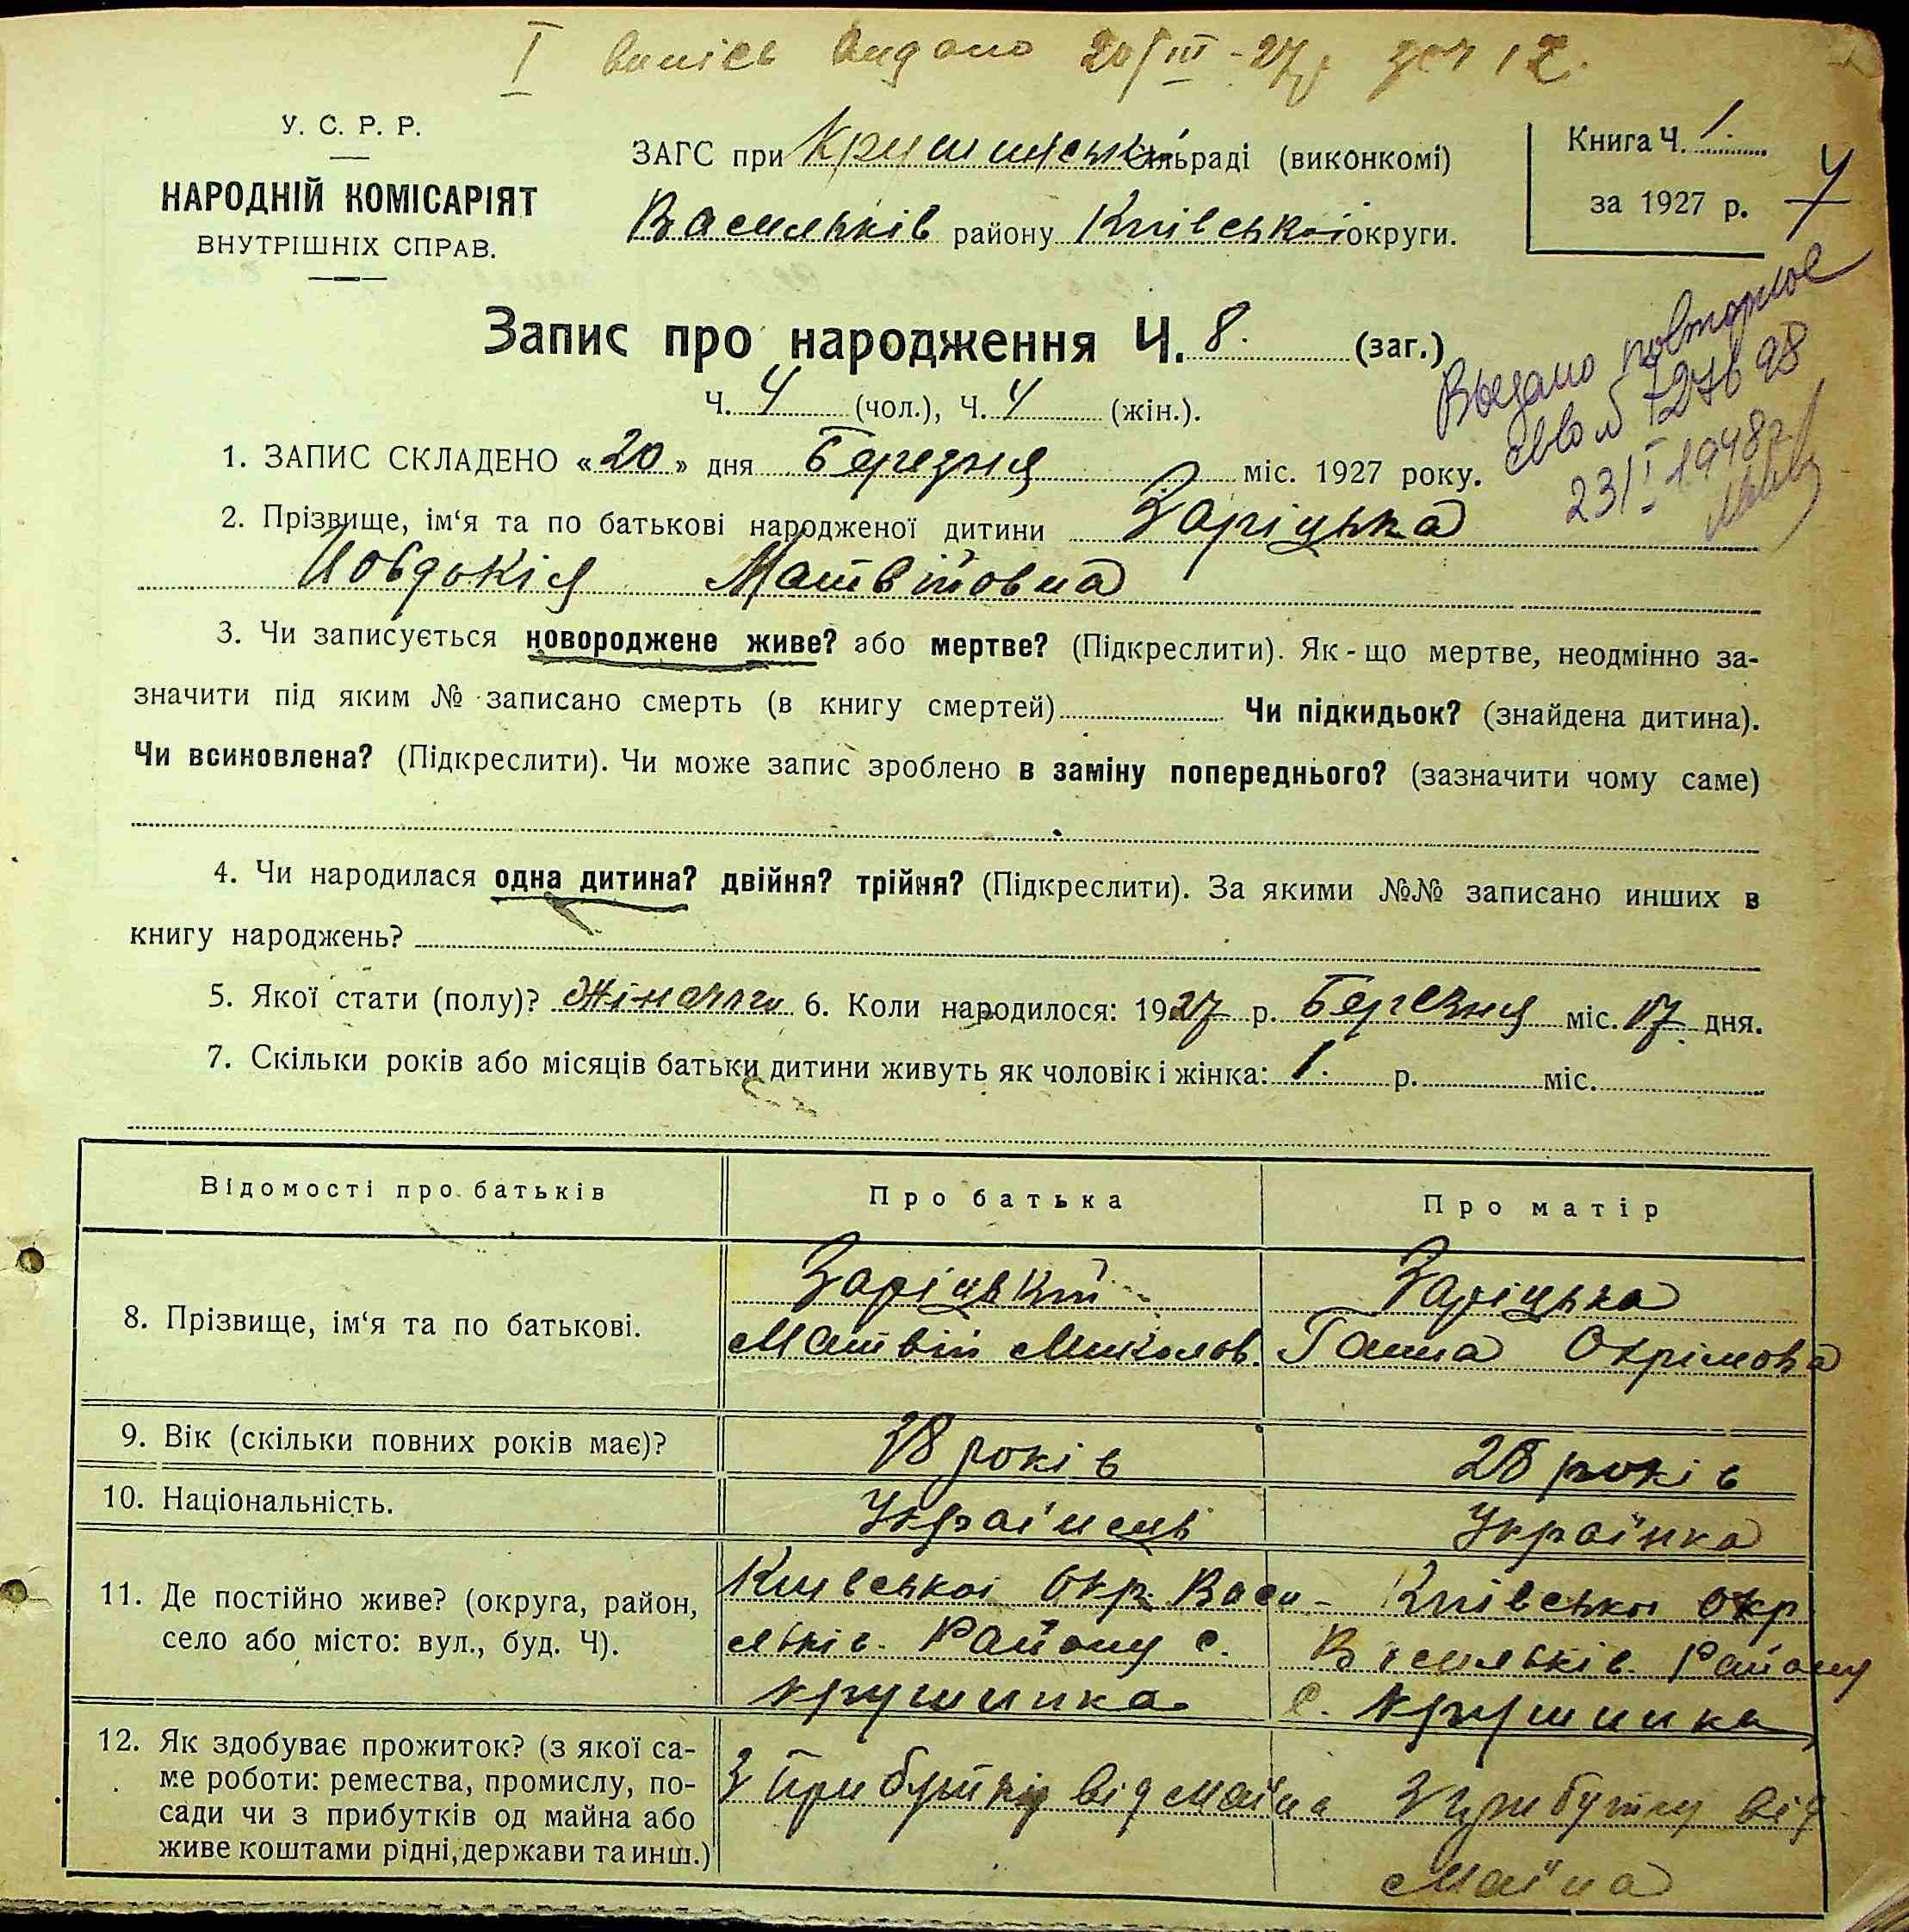 I випісь видано 20/III-27р.
У. С. Р. Р.
НАРОДНІЙ КОМІСАРІЯТ
ВНУТРІШНІХ СПРАВ.
ЗАГС при Крушинській сільраді (виконкомі)
Васильків району Київської округи.
Книга Ч. 1.
за 1927 р.
4
Запис про народження Ч. 8. (заг.)
Ч. 4 (чол.), Ч. 4 (жін.).
Выдано повторное
свво 127698
23/I 1948г
1. ЗАПИС СКЛАДЕНО «20» дня Березня міс. 1927 року.
2. Прізвище, ім‘я та по батькові народженої дитини Заріцька
Иовдокія Матвійовна
3. Чи записується новороджене живе? або мертве? (Підкреслити). Як-що мертве, неодмінно за-
значити під яким № записано смерть (в книгу смертей) Чи підкидьок? (знайдена дитина).
Чи всиновлена? (Підкреслити). Чи може запис зроблено в заміну попереднього? (зазначити чому саме)
4. Чи народилася одна дитина? двійня? трійня? (Підкреслити). За якими №№ записано инших в
книгу народжень?
5. Якої стати (полу)? 6. Коли народилося: 1927 р. Березня міс. 17 дня.
7. Скільки років або місяців батьки дитини живуть як чоловік і жінка: 1. р. міс.
Відомості про батьків Про батька Про матір
8. Прізвище, ім‘я та по батькові.
Заріцький
Матвій Миколов.
Заріцька
Ганна Охрімовна
9. Вік (скільки повних років має)? 38 років 28 років
10. Національність. Українець Українка
11. Де постійно живе? (округа, район,
село або місто: вул., буд. Ч).
Київської Окр. Васи-
льків. Району с.
Крушинка
Київської Окр
Васильків. Району
с. Крушинка
12. Як здобуває прожиток? (з якої са-
ме роботи: ремества, промислу, по-
сади чи з прибутків од майна або
живе коштами рідні, держави та инш.)
З прибутку від маїна
З прибутку від
маїна